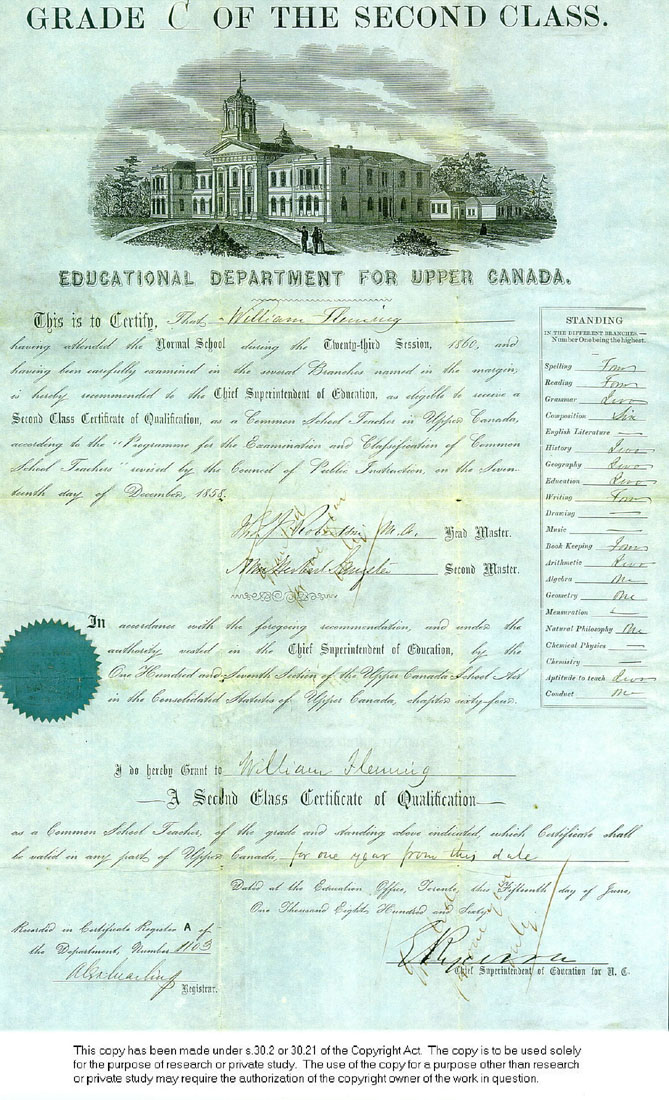 GRADE C OF THE SECOND CLASS.
EDUCATIONAL DEPARTMENT FOR UPPER CANADA.
This is to Certify, That William Fleming
having attended the Normal School during the Twenty-third Session, 1860, and
having been carefully examined in the several Branches named in the margin,
is hereby recommended to the Chief Superintendent of Education, as eligible to receive a
Second Class Certificate of Qualification, as a Common School Teacher in Upper Canada,
according to the "Programme for the Examination and Classification of Common
School Teachers" revised by the Council of Public Instruction, on the Seven-
teenth day of December, 1858.
Robertson M.A. Head Master.
Second Master.
STANDING
IN THE DIFFERENT BRANCHES—
Number One being the highest.
Spelling Four
Reading Four
Grammar Two
Composition Six
English Literature —
History Two
Geography Two
Education Two
Writing Four
Drawing —
Music —
Book Keeping Four
Arithmetic Two
Algebra One
Geometry One
Mensuration —
Natural Philosophy One
Chemical Physics —
Chemistry —
Aptitude to teach Two
Conduct One
In accordance with the foregoing recommendation, and under the
authority vested in the Chief Superintendent of Education, by the
One Hundred and Seventh Section of the Upper Canada School Act
in the Consolidated Statutes of Upper Canada, chapter sixty-four.
I do hereby Grant to William Fleming
—A Second Class Certificate of Qualification—
as a Common School Teacher, of the grade and standing above indicated, which Certificate shall
be valid in any part of Upper Canada, for one year from this date
Dated at the Education Office, Toronto, this Fifteenth day of June,
One Thousand Eight Hundred and Sixty
Recorded in Certificate Register A of
the Department, Number 1103
Registrar.
E Ryerson
Chief Superintendent of Education for U. C.
This copy has been made under s.30.2 or 30.21 of the Copyright Act. The copy is to be used solely
for the purpose of research or private study. The use of the copy for a purpose other than research
or private study may require the authorization of the copyright owner of the work in question.